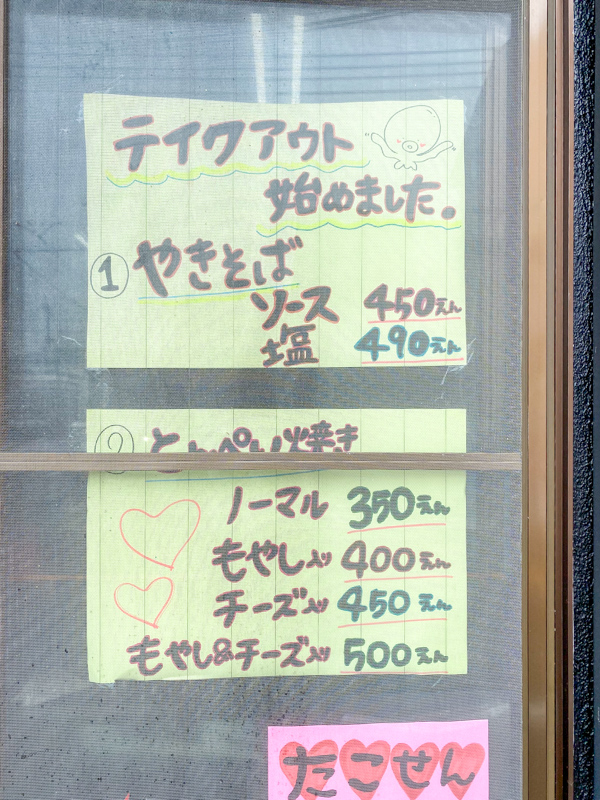 テイクアウト
始めました。
① やきそば
ソース 450えん
塩 490えん
② とんぺい焼き
ノーマル 350えん
もやし入り 400えん
チーズ入り 450えん
もやし&チーズ入り 500えん
たこせん